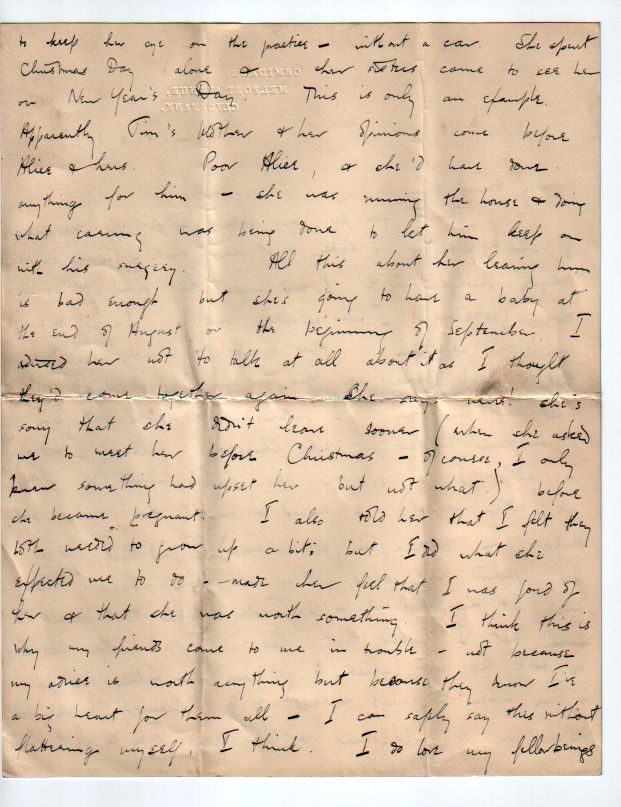 to keep her eye on the practice – without a car. She spent
Christmas Day alone & her sisters came to see her
on New Year's Day. This is only an example.
Apparently Tim's Mother & her opinions come before
Alice & hers. Poor Alice, & she'd have done
anything for him – she was running the house & doing
what canning was being done to let him keep on
with his surgery. All this about her leaving him
is bad enough but she's going to have a baby at
the end of August or the beginning of September. I
advised her not to talk at all about it as I thought
they'd come together again. She says never! She's
sorry that she didn't leave sooner (when she asked
me to meet her before Christmas – of course, I only
knew something had upset her but not what.) before
she became pregnant. I also told her that I felt they
both needed to grow up a bit; but I did what she
expected me to do – made her feel that I was fond of
her & that she was worth something. I think this is
why my friends come to me in trouble – not because
my advice is worth anything but because they know I've
a big heart for them all – I can safely say this without
flattering myself, I think. I do love my fellowbeings